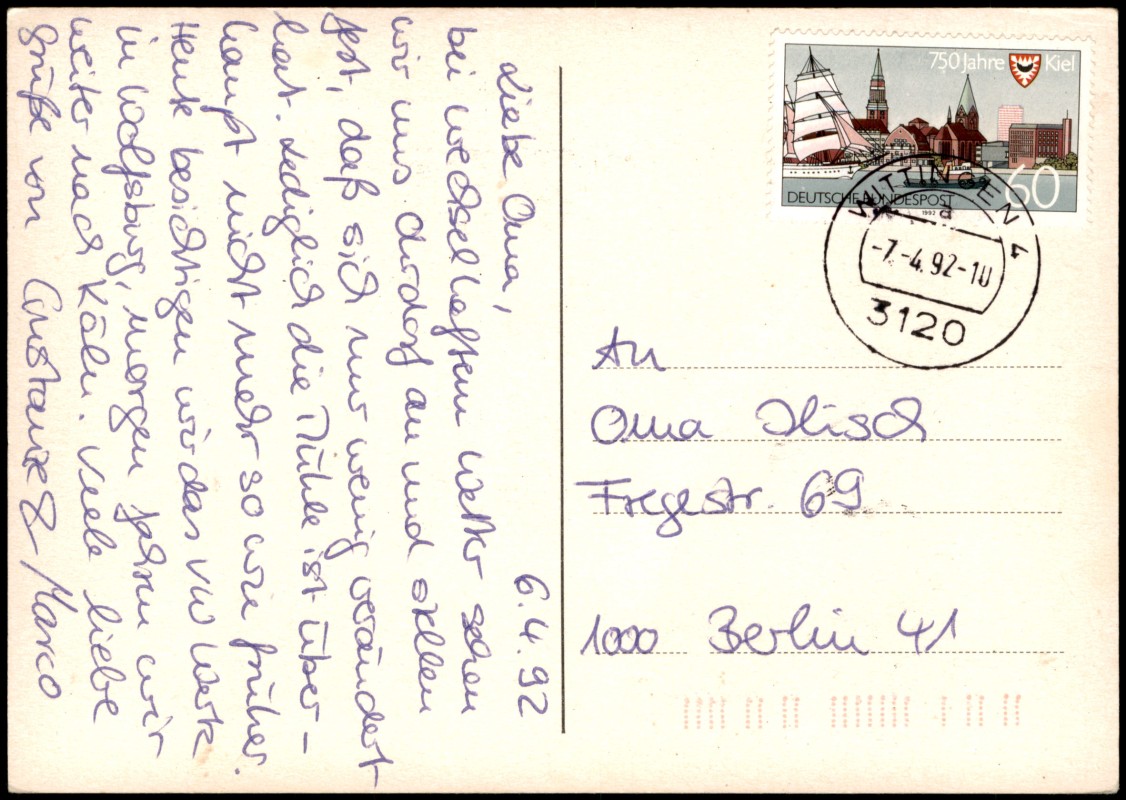 6.4.92
Liebe Oma,
bei wechselhaftem Wetter sehen
wir uns Ohrdorf an und stellen
fest, daß sich nur wenig verändert
hat. Lediglich die Mühle ist über-
haupt nicht mehr so wie früher.
Heute besichtigen wir das VW Werk
in Wolfsburg, morgen fahren wir
weiter nach Köln. Viele liebe
Grüße von Constanze & Marco
750 Jahre Kiel
DEUTSCHE BUNDESPOST
60
1992
WITTINGEN 1
d
-7.-4.92-10
3120
An
Oma Ilisch
Fregestr. 69
1000 Berlin 41